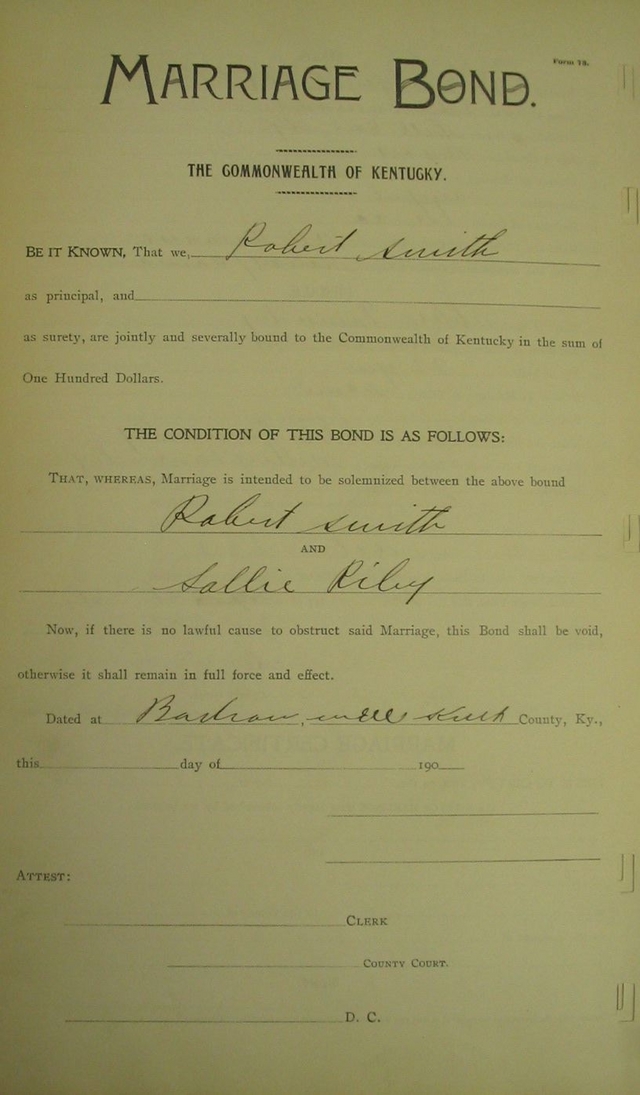 Form 18.
MARRIAGE BOND.
THE COMMONWEALTH OF KENTUCKY.
BE IT KNOWN, That we, Robert Smith
as principal, and
as surety, are jointly and severally bound to the Commonwealth of Kentucky in the sum of
One Hundred Dollars.
THE CONDITION OF THIS BOND IS AS FOLLOWS:
THAT, WHEREAS, Marriage is intended to be solemnized between the above bound
Robert Smith
AND
Sallie Riley
Now, if there is no lawful cause to obstruct said Marriage, this Bond shall be void,
otherwise it shall remain in full force and effect.
Dated at County, Ky.,
this day of 190
ATTEST:
CLERK
COUNTY COURT.
D. C.